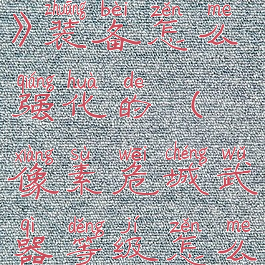 zhuāng bèi zěn me
》装备怎么
qiáng huà de
强化的（
xiàng sù wēi chéng wǔ
像素危城武
qì děng jí zěn me
器等级怎么